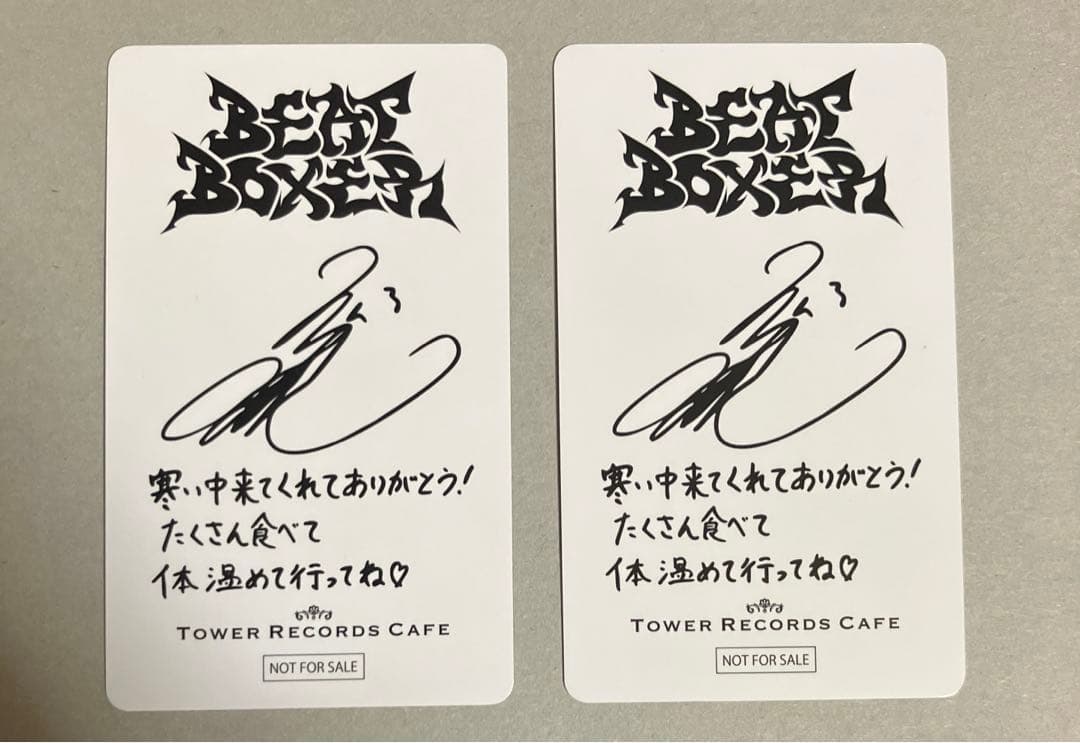 BEAT
BOXER
寒い中来てくれてありがとう!
たくさん食べて
体温めて行ってね♡
TOWER RECORDS CAFE
NOT FOR SALE
BEAT
BOXER
寒い中来てくれてありがとう!
たくさん食べて
体温めて行ってね♡
TOWER RECORDS CAFE
NOT FOR SALE